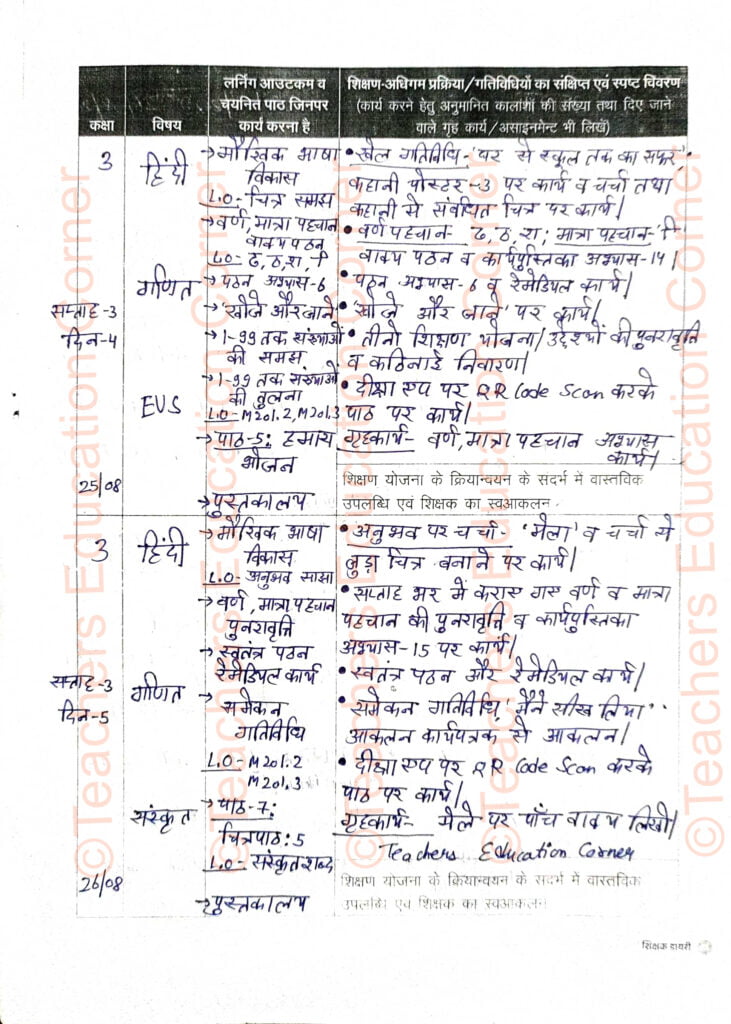 कक्षा
विषय
लर्निंग आउटकम व
चयनित पाठ जिनपर
कार्य करना है
शिक्षण-अधिगम प्रक्रिया/गतिविधियों का संक्षिप्त एवं स्पष्ट विवरण
(कार्य करने हेतु अनुमानित कालांशों की संख्या तथा दिए जाने
वाले गृह कार्य/असाइनमेन्ट भी लिखें)
3
सप्ताह-3
दिन-4
25/08
हिंदी
गणित
EVS
→मौखिक भाषा
विकास
L.O- चित्र समझ
→वर्ण, मात्रा पहचान
वाक्य पठन
L.O- ढ, ठ, श, ी
→ पठन अभ्यास-6
→'खोजें और जाने'
→1-99 तक संख्याओं
की समझ
→1-99 तक संख्याओं
की तुलना
L.O-M201.2, M201.3
→पाठ-5: हमारा
भोजन
→पुस्तकालय
• खेल गतिविधि- 'घर से स्कूल तक का सफर',
कहानी पोस्टर-3 पर कार्य व चर्चा तथा
कहानी से संबंधित चित्र पर कार्य।
• वर्ण पहचान- ढ, ठ, श, मात्रा पहचान- ी
वाक्य पठन व कार्यपुस्तिका अभ्यास-14।
• पठन अभ्यास-6 व रेमेडियल कार्य।
• 'खोजें और जाने' पर कार्य।
• तीनो शिक्षण योजना/उद्देश्यों की पुनरावृत्ति
व कठिनाई निवारण।
• दीक्षा एप पर QR Code Scan करके
पाठ पर कार्य।
गृहकार्य- वर्ण, मात्रा पहचान अभ्यास
कार्य।
शिक्षण योजना के क्रियान्वयन के संदर्भ में वास्तविक
उपलब्धि एवं शिक्षक का स्वआकलन
3
सप्ताह-3
दिन-5
26/08
हिंदी
गणित
संस्कृत
→मौखिक भाषा
विकास
L.O- अनुभव साझा
→वर्ण, मात्रा पहचान
पुनरावृत्ति
→स्वतंत्र पठन
रेमेडियल कार्य
→ समेकन
गतिविधि
L.O- M201.2
M201.3
→ पाठ-7:
चित्रपाठ: 5
L.O- संस्कृत शब्द
→पुस्तकालय
• अनुभव पर चर्चा- 'मेला' व चर्चा से
जुड़ा चित्र बनाने पर कार्य।
• सप्ताह भर में कराए गए वर्ण व मात्रा
पहचान की पुनरावृत्ति व कार्यपुस्तिका
अभ्यास-15 पर कार्य।
• स्वतंत्र पठन और रेमेडियल कार्य।
• समेकन गतिविधि, 'मैंने सीख लिया'
आकलन कार्यपत्रक से आकलन।
• दीक्षा एप पर QR Code Scan करके
पाठ पर कार्य।
गृहकार्य- मेले पर पाँच वाक्य लिखो।
Teachers Education Corner
शिक्षण योजना के क्रियान्वयन के संदर्भ में वास्तविक
उपलब्धि एवं शिक्षक का स्वआकलन
शिक्षक डायरी
©Teachers Education Corner
©Teachers Education Corner
©Teachers Education Corner
©Teachers Education Corner
©Teachers Education Corner